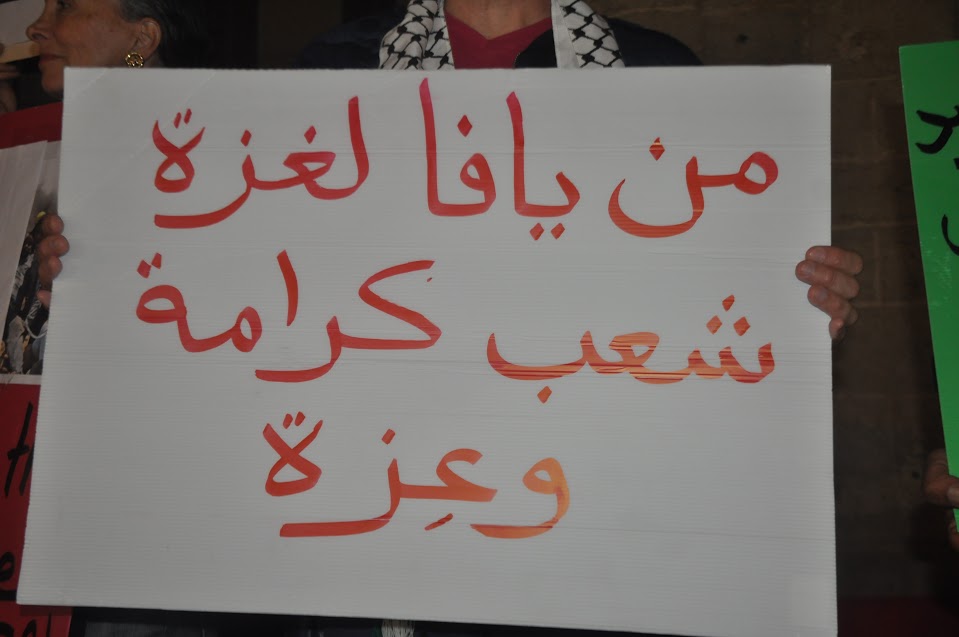 من يافا لغزة
شعب كرامة
وعِزة